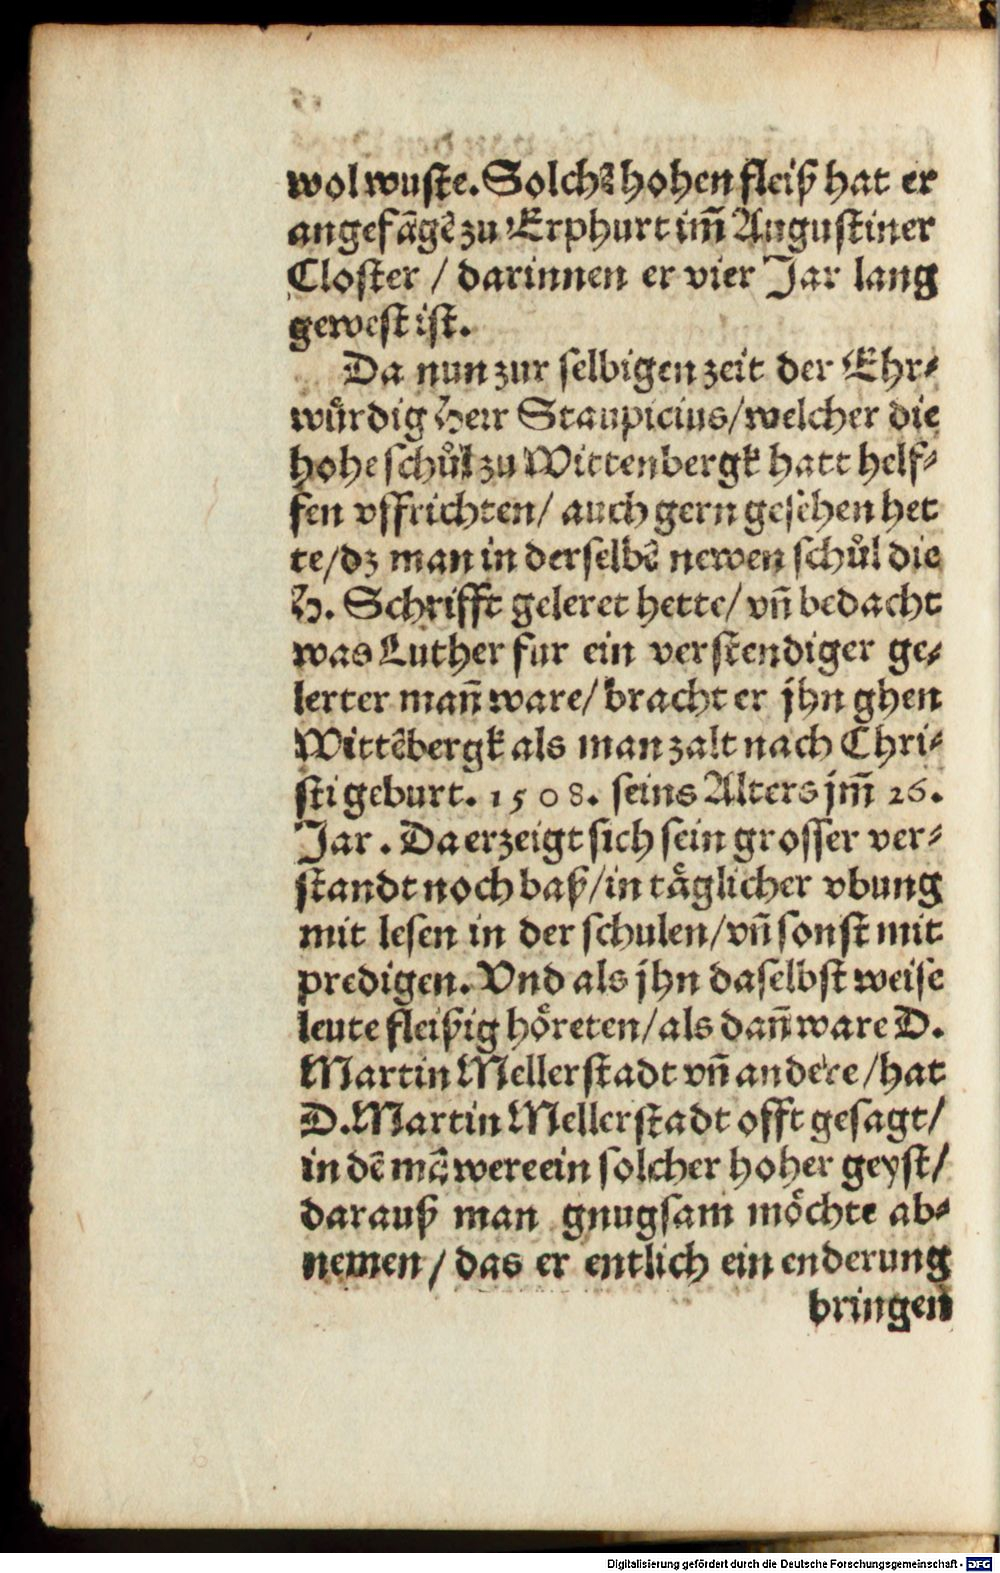 wol wuste. Solchẽ hohen fleiß hat er
angefãgẽ zu Erphurt im̃ Augustiner
Closter / darinnen er vier Jar lang
gewest ist.
Da nun zur selbigen zeit der Ehr-
wuͤrdig Herr Staupicius / welcher die
hohe schuͦl zu Wittenbergk hatt helf-
fen vffrichten / auch gern gesehen het
te / dz man in derselbẽ newen schuͦl die
H. Schrifft geleret hette / vñ bedacht
was Luther fur ein verstendiger ge-
lerter mañ ware / bracht er jhn ghen
Wittẽbergk als man zalt nach Chri-
sti geburt. 1508. seins Alters jm̃ 26.
Jar. Da erzeigt sich sein grosser ver-
standt noch baß / in taͤglicher vbung
mit lesen in der schulen / vñ sonst mit
predigen. Vnd als jhn daselbst weise
leute fleißig hoͤreten / als dañ ware D.
Martin Mellerstadt vñ andere / hat
D. Martin Mellerstadt offt gesagt /
in dẽ mã were ein solcher hoher geyst /
darauß man gnugsam moͤchte ab-
nemen / das er entlich ein enderung
bringen
Digitalisierung gefördert durch die Deutsche Forschungsgemeinschaft - DFG